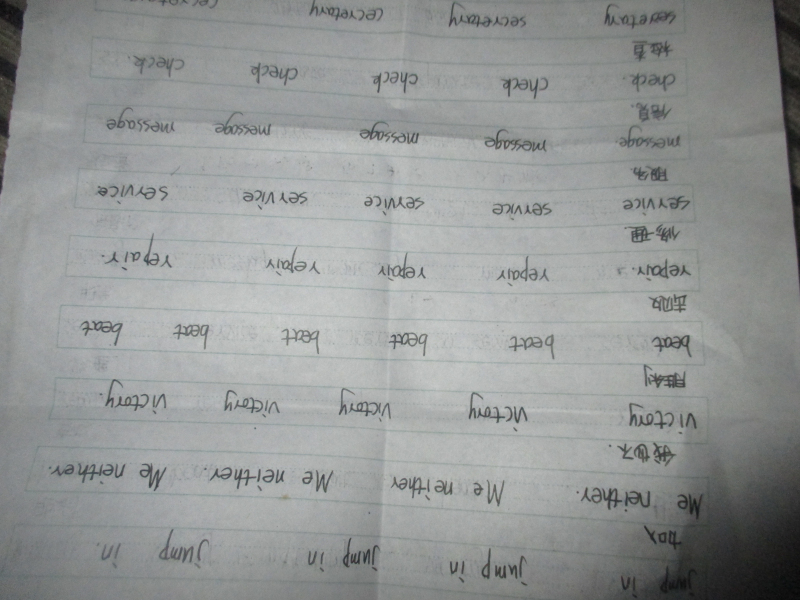 jump in jump in jump in jump in.
加入
Me neither. Me neither Me neither. Me neither.
我也不.
victory victory victory victory victory.
胜利
beat beat beat beat beat beat
击败
repair. repair repair repair repair.
修理
service service service service service
服务.
message. message message message message
信息.
check. check check check check.
检查
secretary secretary secretary